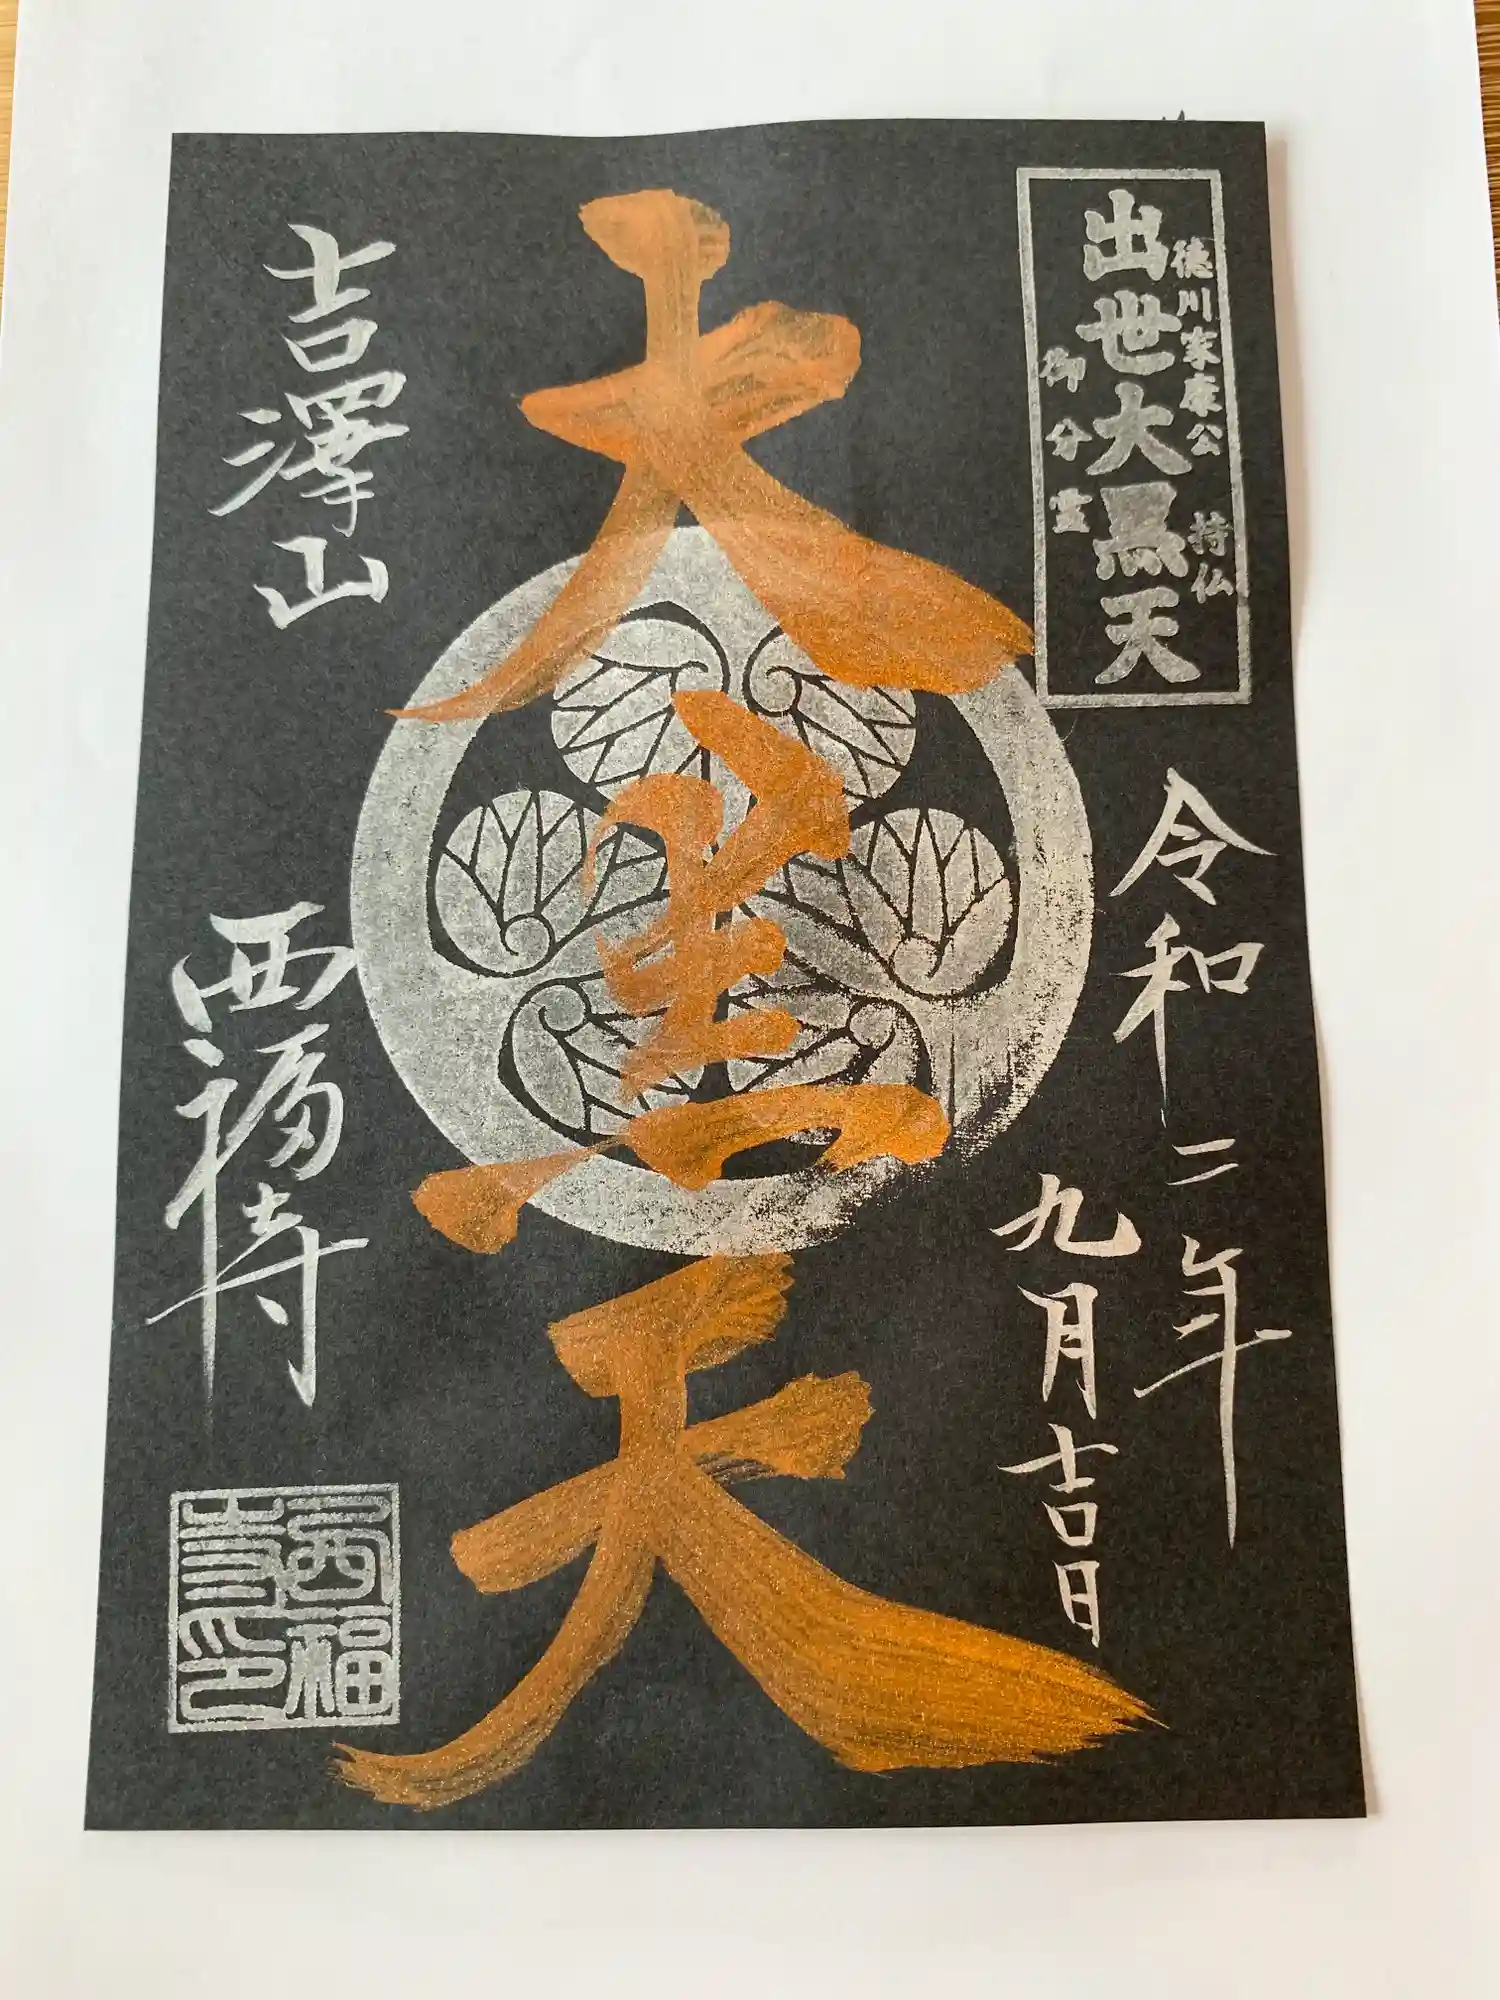 徳川家康公 持仏
出世大黒天
御分霊
令和二年
九月吉日
大黒天
吉澤山
西福寺
西福
寺印